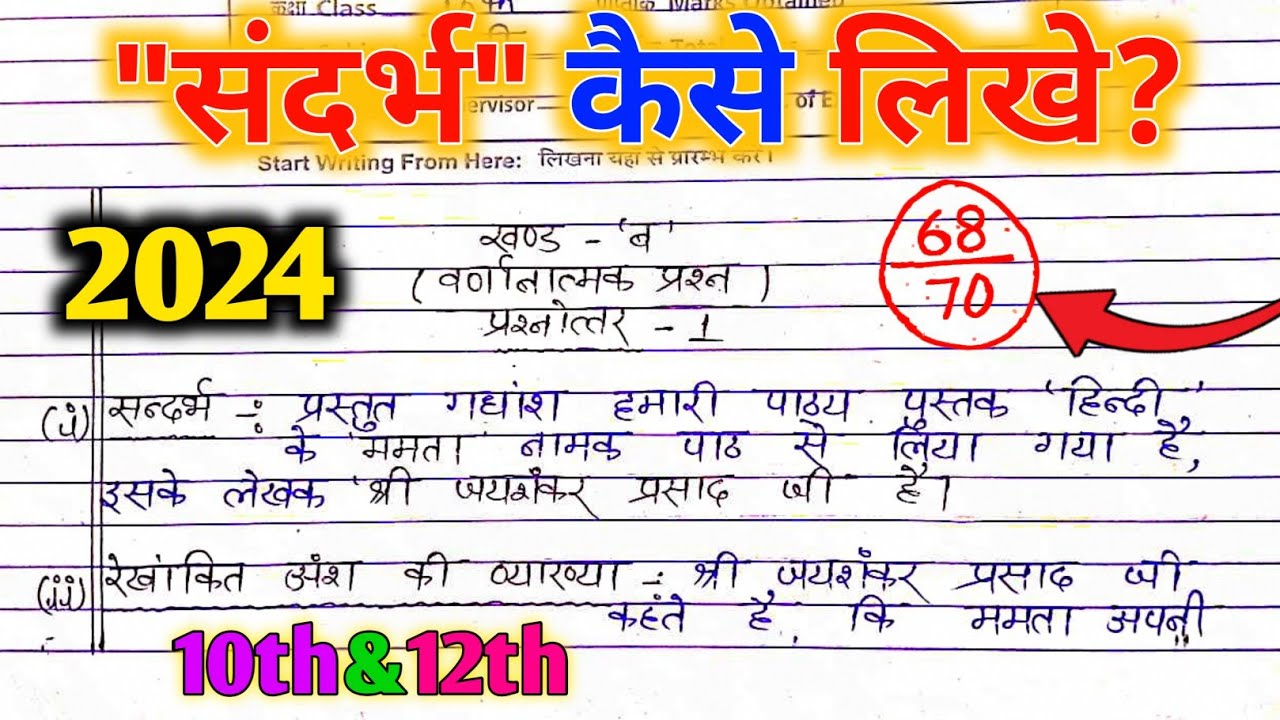 कक्षा Class
"संदर्भ" कैसे लिखे?
ervisor of E
Start Writing From Here: लिखना यहाँ से प्रारम्भ करें।
2024
खण्ड - 'ब'
(वर्णानात्मक प्रश्न)
प्रश्नोत्तर - 1
68
70
(i) सन्दर्भ -: प्रस्तुत गद्यांश हमारी पाठ्य पुस्तक 'हिन्दी'
के 'ममता' नामक पाठ से लिया गया है,
इसके लेखक 'श्री जयशंकर प्रसाद जी हैं।
(ii) रेखांकित अंश की व्याख्या -: श्री जयशंकर प्रसाद जी
कहते है, कि ममता अपनी
10th&12th